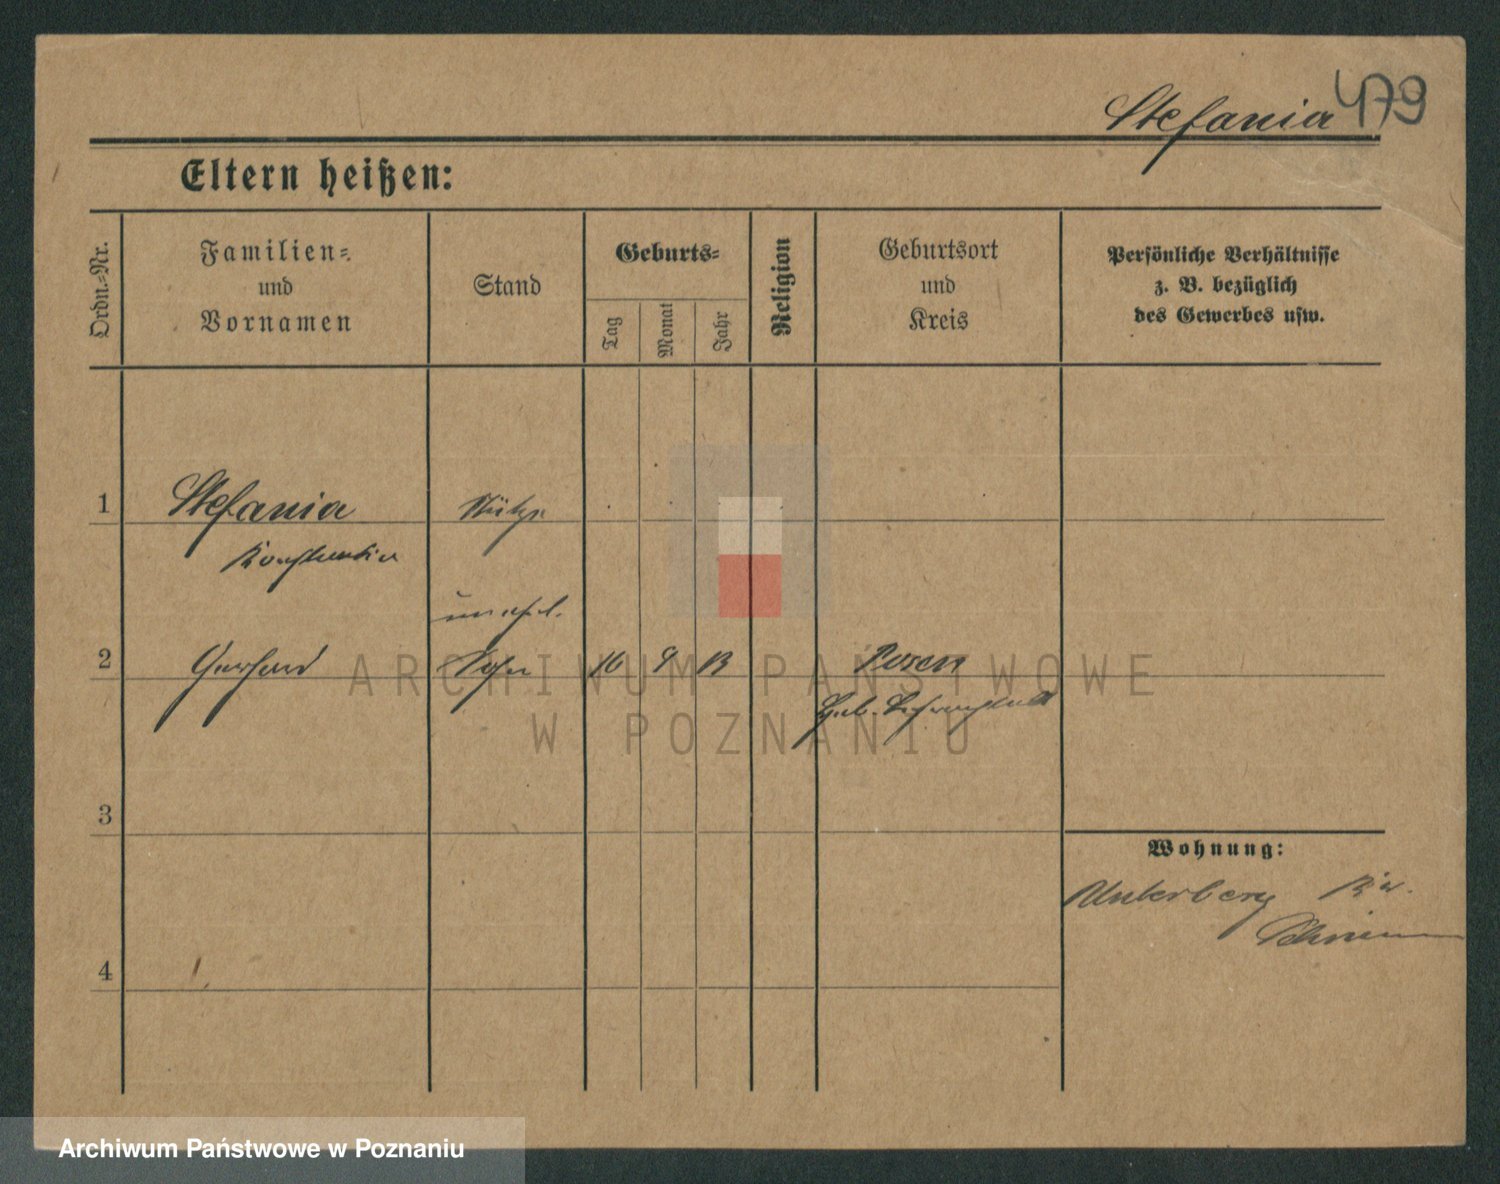 Stefania 479
Eltern heißen:
Ordn.-Nr.
Familien-
und
Vornamen
Stand
Geburts-
Tag
Monat
Jahr
Religion
Geburtsort
und
Kreis
Persönliche Verhältnisse
z. B. bezüglich
des Gewerbes usw.
1 Stefania Stütze
Konstantia
unehel.
2 Gerhard Sohn 16 9 13 Posen
ARCHIWUM PAŃSTWOWE
W POZNANIU
3
Wohnung:
Unterberg Kr.
4
Archiwum Państwowe w Poznaniu